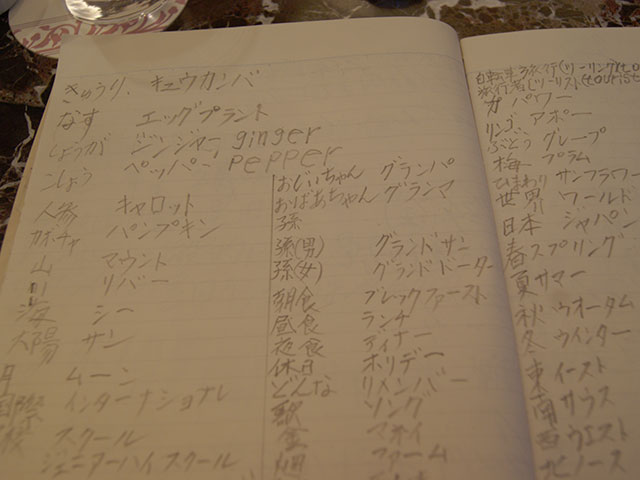 きゅうり、キュウカンバ
なす エッグプラント
しょうが ジンジャー ginger
こしょう ペッパー pepper
人参 キャロット
カボチャ パンプキン
山 マウント
川 リバー
海 シー
太陽 サン
月 ムーン
国際 インターナショナル
スクール
ジュニアーハイスクール
おじいちゃん グランパ
おばあちゃん グランマ
孫
孫(男) グランドサン
孫(女) グランドドーター
朝食 ブレックファースト
昼食 ランチ
夜食 ディナー
休日 ホリデー
どんな リメンバー
歌 ソング
金 マネイ
ファーム
自転車旅行(ツーリング)(to
旅行者(ツーリスト(tourist
力 パワー
リンゴ アポー
ぶどう グレープ
梅 プラム
ひまわり サンフラワー
世界 ワールド
日本 ジャパン
春 スプリング
夏 サマー
秋 ウオータム
冬 ウインター
東 イースト
南 サウス
西 ウエスト
北 ノース